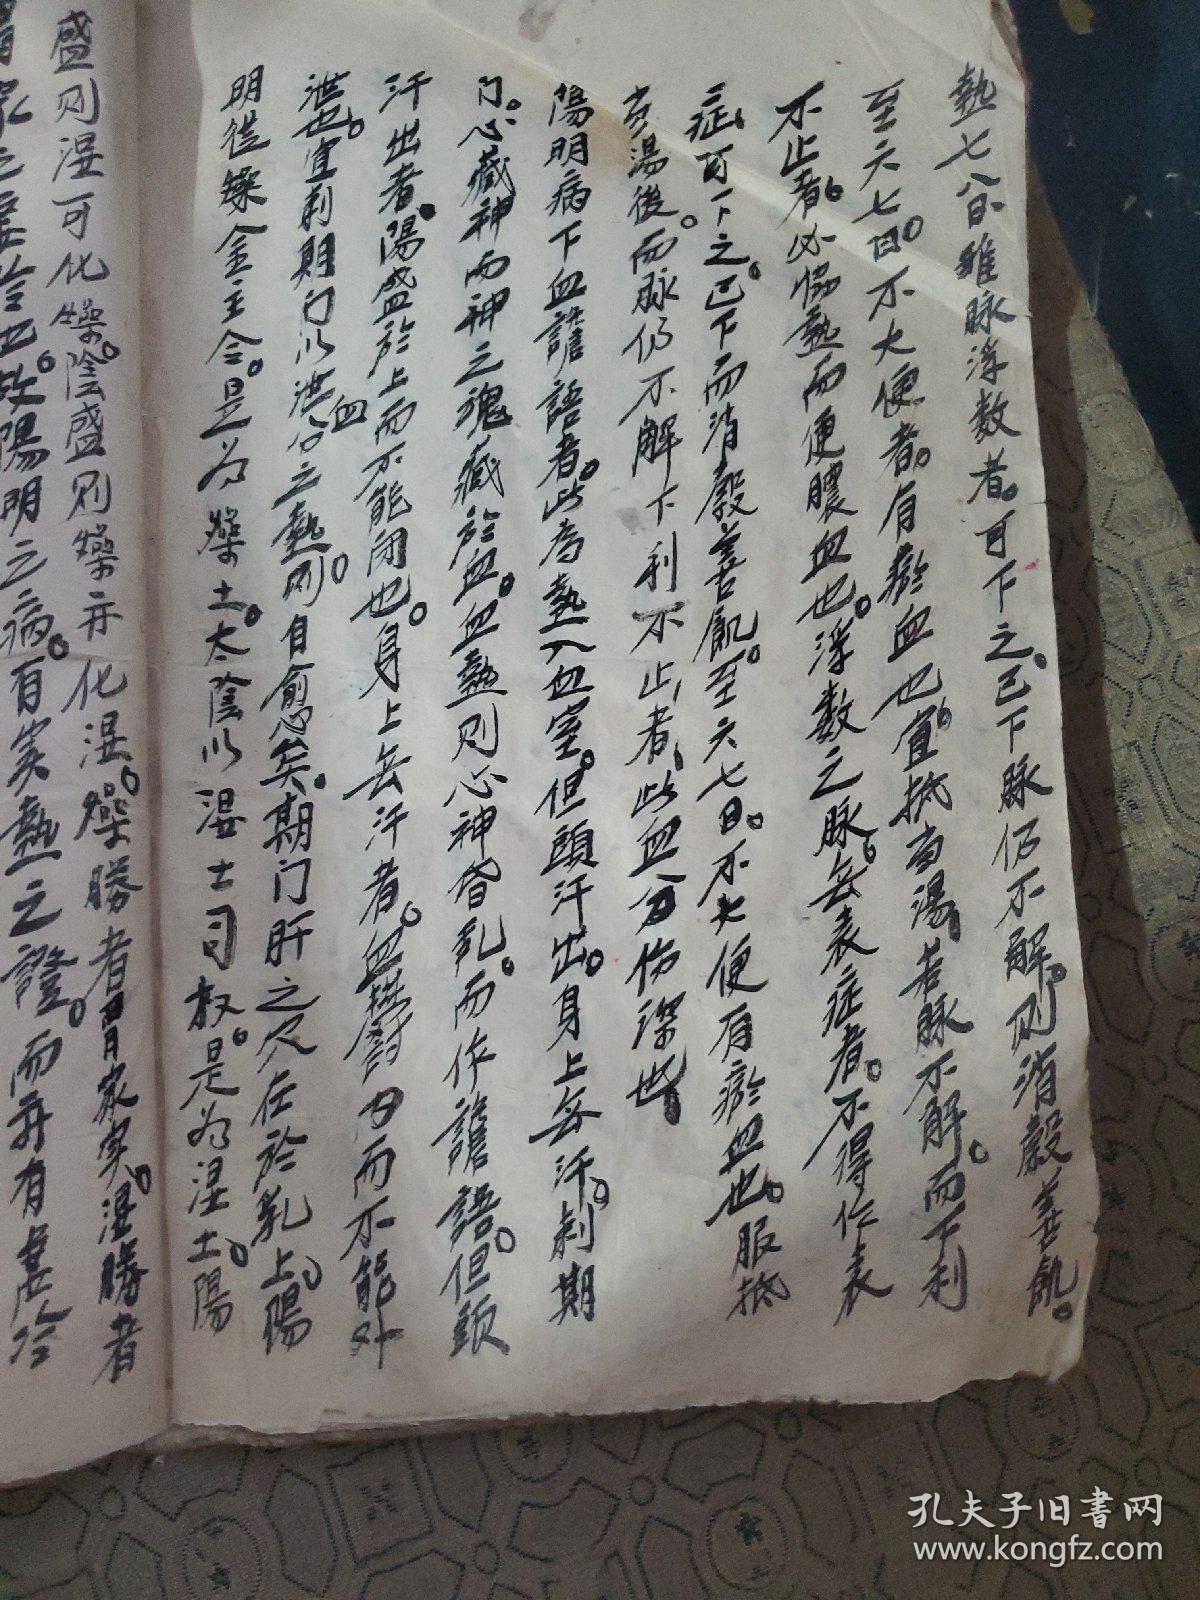 熱七八日雖脉浮数者。可下之。已下脉仍不解。则消穀善飢。
至六七日。不大便者。有瘀血也。宜抵当湯。若脉不解。而下利
不止者。必協熱而便膿血也。浮数之脉。無表症者。不得作表
症。可下之。已下而消穀善飢。至六七日。不大便有瘀血也。服抵
当湯後。而脉仍不解下利不止者。此血分伤深也。
陽明病下血譫語者。此為熱入血室。但頭汗出。身上無汗。刺期
门。心藏神而神之魂藏於血。血熱则心神昏乱。而作譫語。但頭
汗出者。陽盛於上而不能闭也。身上無汗者。血熱内而不能外
泄也。宜刺期门以泄血分之熱。则自愈矣。期门肝之穴在於乳上。陽
明從燥金主令。是为燥土。太陰以湿土司权。是为湿土。陽
盛则湿可化燥。陰盛则燥亦化湿。燥勝者胃家实。湿勝者
胃家之虚冷也。故陽明之病。有实熱之證。而亦有虚冷
孔夫子旧书网
www.kongfz.com